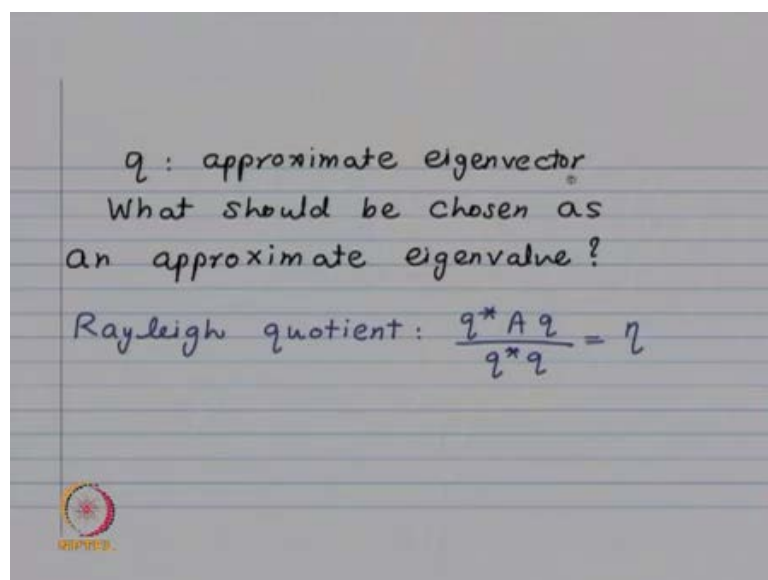 q : approximate eigenvector
What should be chosen as
an approximate eigenvalue ?
Rayleigh quotient : q* A q / q* q = η
NPTEL